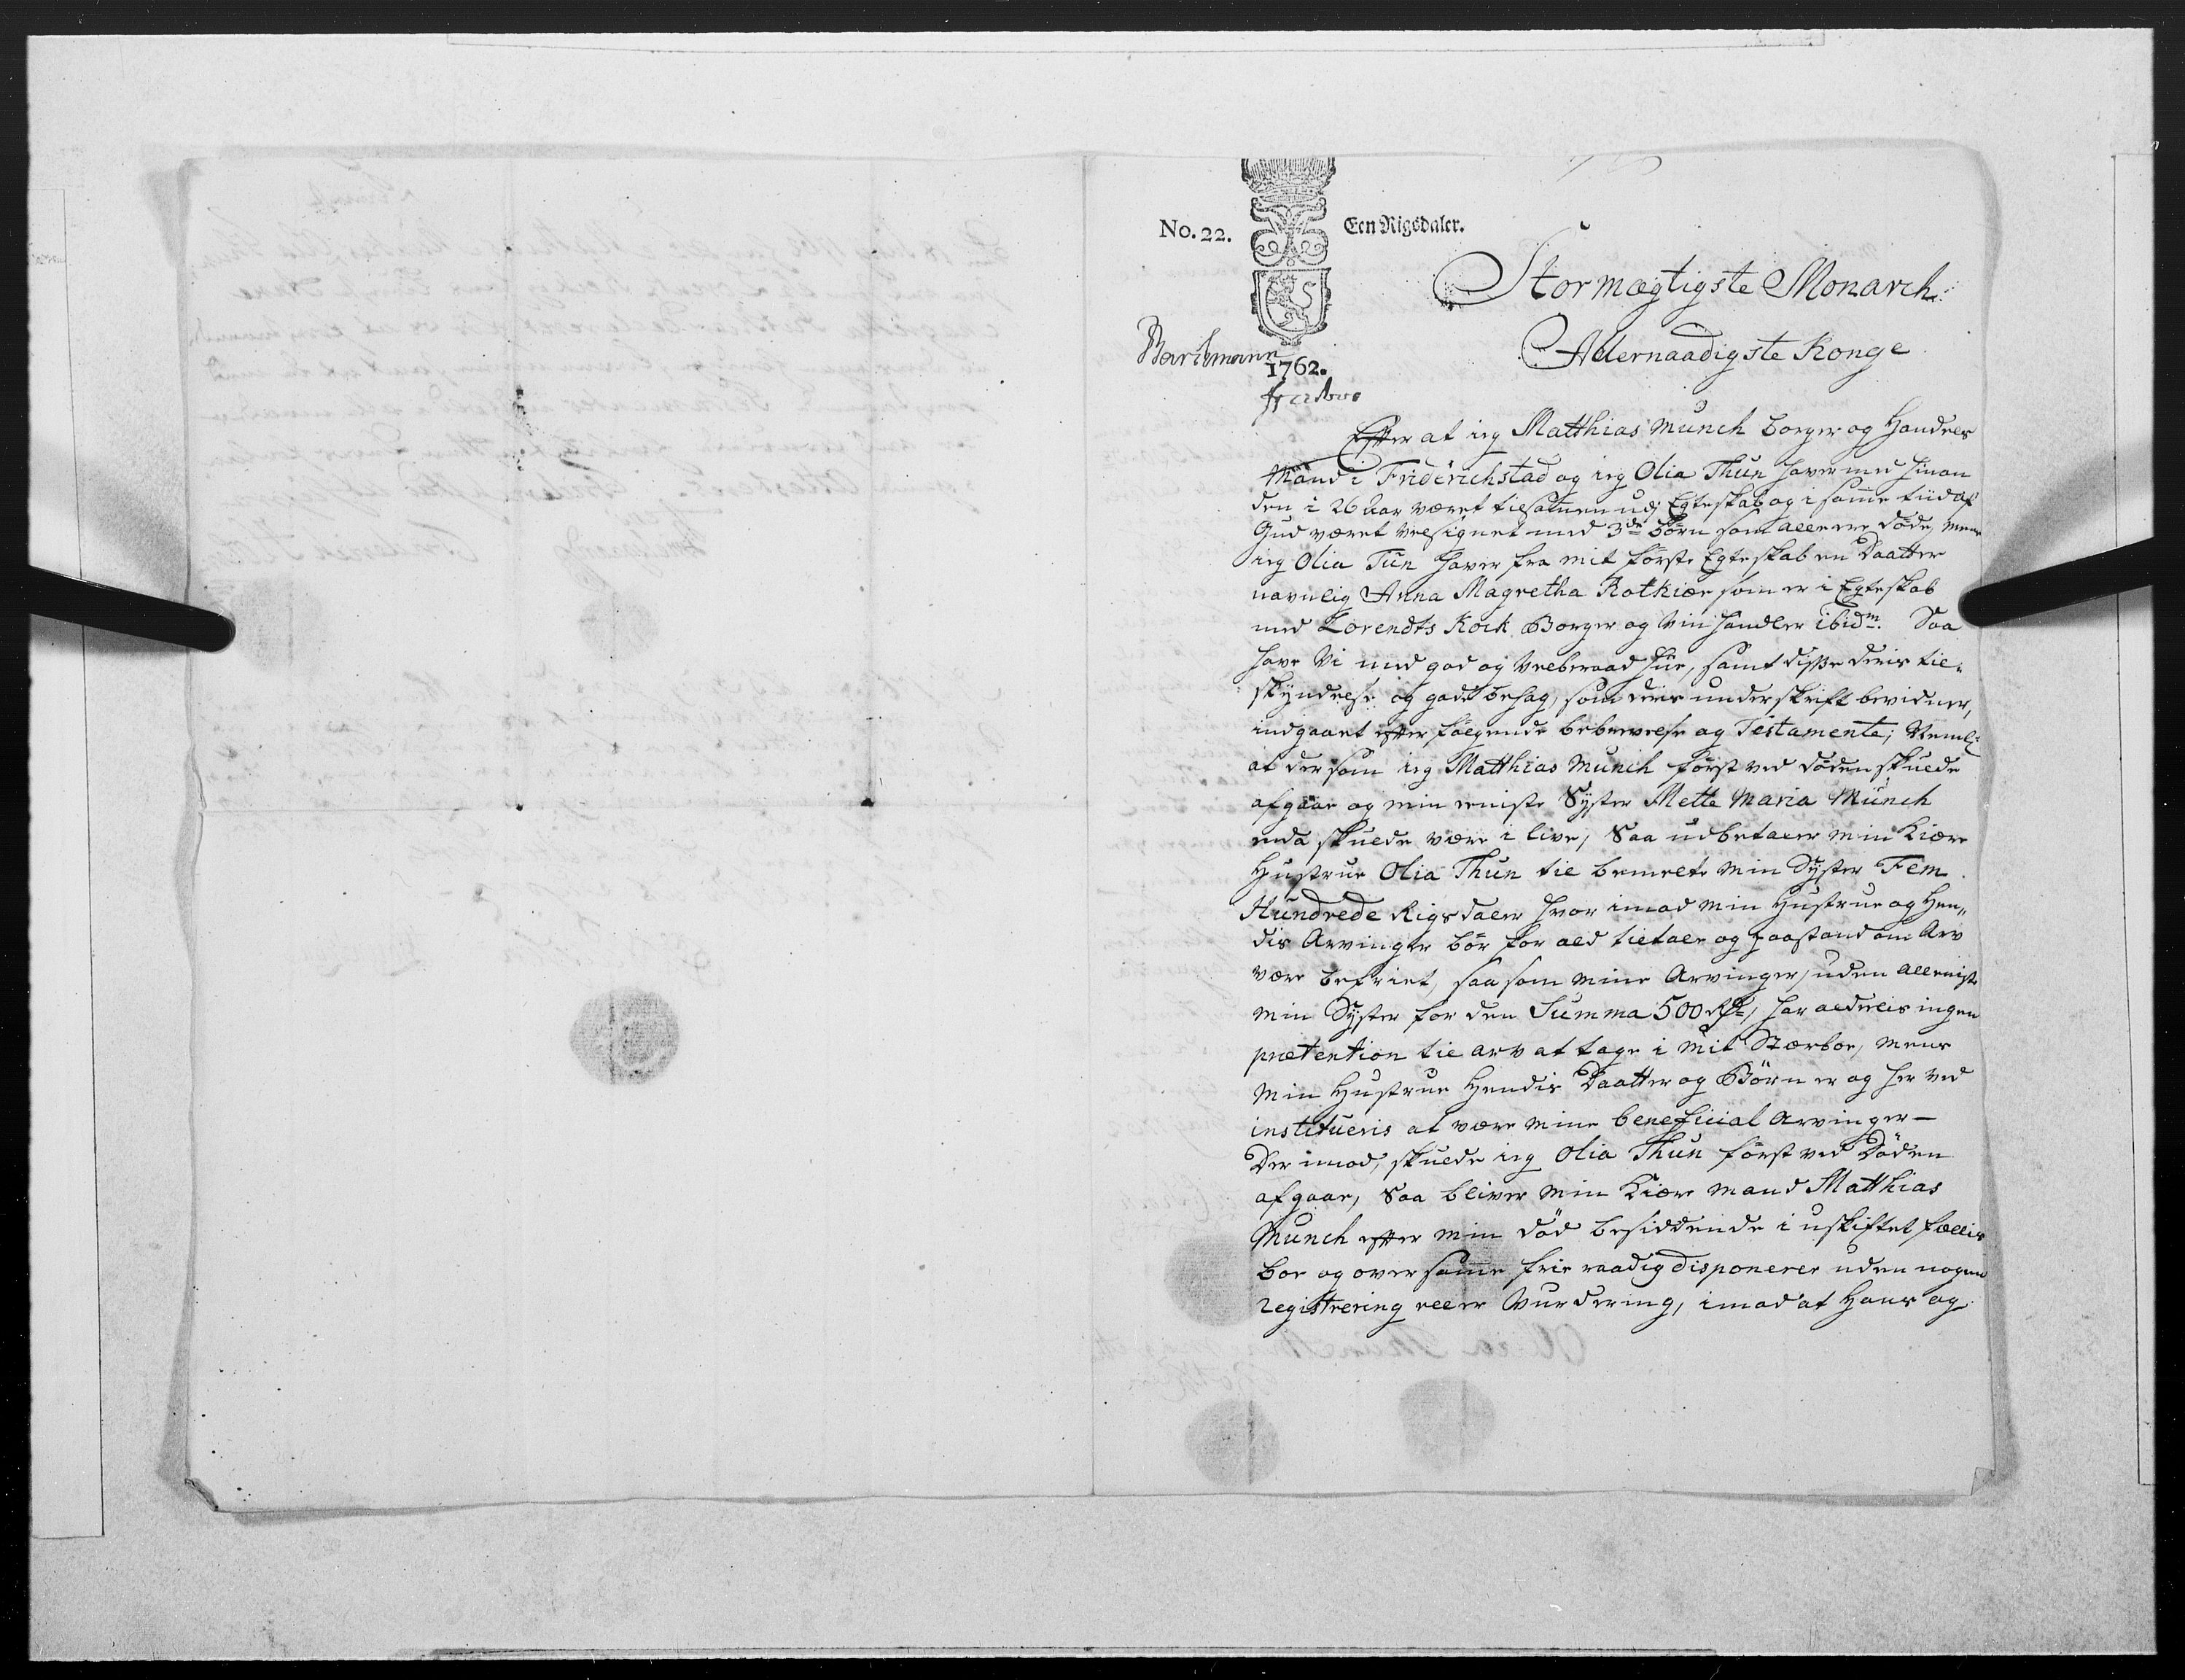 No. 22.
Een Rigsdaler.
Stormægtigste Monarch
Allernaadigste Konge
1762.
Efter at ieg Matthias Munch borger og Handels
Mand i Friderichstad og ieg Olia Thun haver med hinan
den i 26 Aar været tilsammen udj Egteskab og i samme tiid af
Gud været velsignet med 3de børn som alle ere döde, mens
ieg Olia Tün haver fra mit förste Egteskab en Daatter
navnlig Anna Magretha Rotkiær som er i Egteskab
med Lorendts Kock Borger og Viin handler ibidm. Saa
have Vi med god og velberaad hüe, samt disse deris til-
skyndelse og gode behag, som deris underskrift bevidner,
indgaaet efter fölgende bebrevelse og Testamente; Neml:
at der som ieg Matthias Munch först ved döden skulde
afgaae og min eniste Syster Mette Maria Münch
enda skulde være i live, Saa udbetaler min Kiære
Hustrue Olia Thun til bemelte min Syster Fem
Hundrede Rigsdaler hvor imod min Hustrue og Hen,,
dis Arvinger bör for ald tiltale og paastand om Arv
være befriet, saa som mine Arvinger, uden alleniste
min Syster for den Summa 500 Rdr, har aldelis ingen
prætention til arv at tage i mit Stærboe, mens
min Hustrue Hendis Daatter og Börn er og her ved
institueris at være mine beneficial Arvinger —
Der imod, skulde ieg Olia Thun först ved Döden
afgaae, Saa bliver min Kiære mand Matthias
Munch efter min död besiddende i uskiftet fællis
boe og over samme frie raadig disponerer uden nogen
registrering eller Vurdering, imod at Hans og